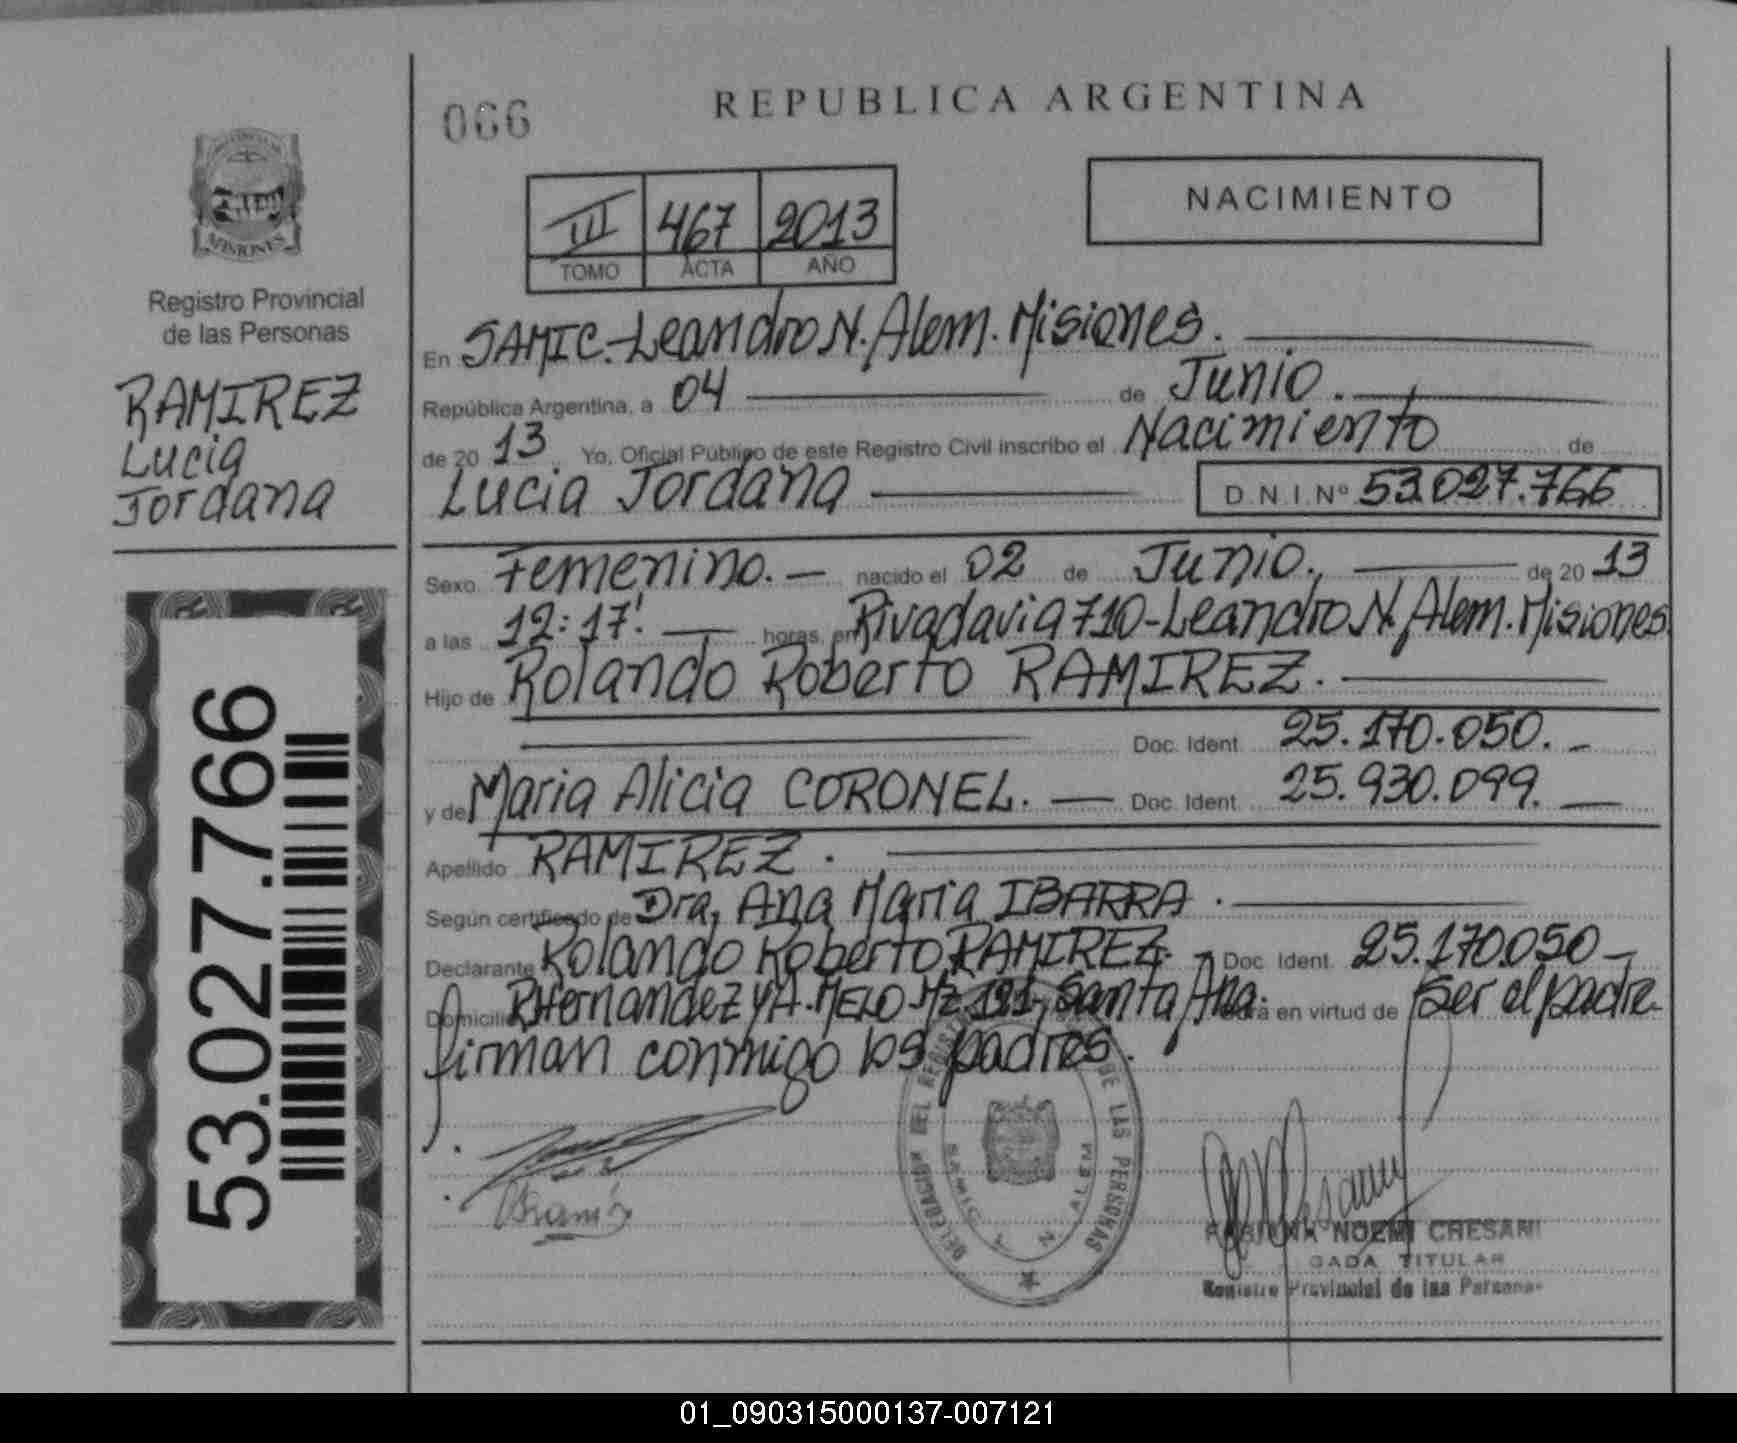 066
REPUBLICA ARGENTINA
MISIONES
Registro Provincial
de las Personas
RAMIREZ
Lucia
Jordana
53.027.766
III 467 2013
TOMO ACTA AÑO
NACIMIENTO
En SAMIC.-Leandro N. Alem. Misiones.
República Argentina, a 04 de Junio.
de 20 13 Yo, Oficial Público de este Registro Civil inscribo el Nacimiento de
Lucia Jordana D.N.I.Nº 53.027.766
Sexo Femenino.- nacido el 02 de Junio. de 20 13
a las 12:17'. horas, en Rivadavia 710-Leandro N. Alem. Misiones
Hijo de Rolando Roberto RAMIREZ.
Doc. Ident. 25.170.050.-
y de Maria Alicia CORONEL. Doc. Ident. 25.930.099.
Apellido RAMIREZ.
Según certificado de Dra, Ana Maria IBARRA.
Declarante Rolando Roberto RAMIREZ.- Doc. Ident. 25.170.050-
Domicilio Hernandez y A. MELO Mz 121, Santa Ana. en virtud de Ser el padre.
firman conmigo los padres.
DELEGACION DEL REGISTRO DE LAS PERSONAS
SAMIC L N ALEM
FABIANA NOEMI CRESANI
TITULAR
Registro Provincial de las Personas
01_090315000137-007121